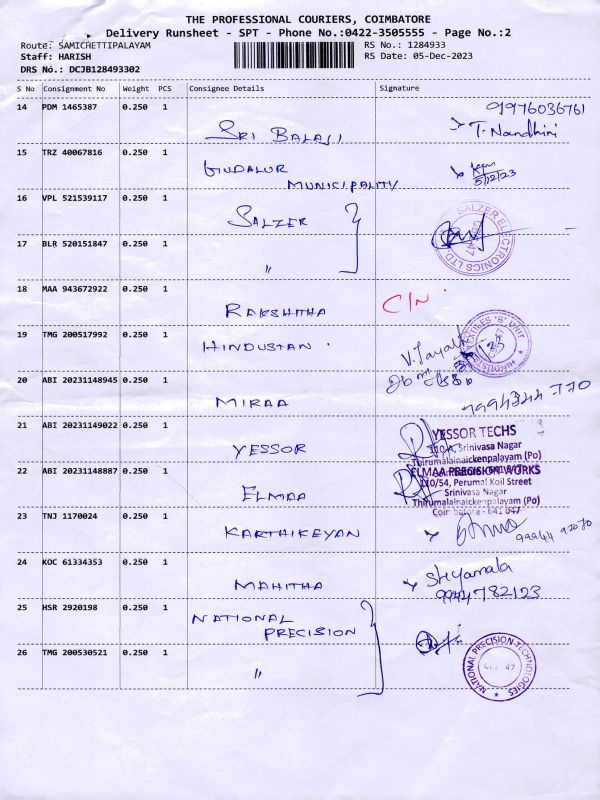 THE PROFESSIONAL COURIERS, COIMBATORE
Delivery Runsheet - SPT - Phone No.:0422-3505555 - Page No.:2
Route: SAMICHETTIPALAYAM RS No.: 1284933
Staff: HARISH RS Date: 05-Dec-2023
DRS No.: DCJB128493302
S No Consignment No Weight PCS Consignee Details Signature
14 PDM 1465387 0.250 1 SRI BALAJI 91976036761
T. Nandhini
15 TRZ 40067816 0.250 1 GUDALUR
MUNICIPALITY 5/12/23
16 VPL 521539117 0.250 1 SALZER
SALZER ELECTRONICS LTD
17 BLR 520151847 0.250 1 "
18 MAA 943672922 0.250 1 RAKSHITHA C/N
19 TMG 200517992 0.250 1 HINDUSTAN
HINDUSTAN TEXTILES 'B' UNIT
20 ABI 20231148945 0.250 1 MIRAA
21 ABI 20231149022 0.250 1 YESSOR
YESSOR TECHS
110-A, Srinivasa Nagar
Thirumalainaickenpalayam (Po)
22 ABI 20231148887 0.250 1 ELMAA
ELMAA PRECISION WORKS
110/54, Perumal Koil Street
Srinivasa Nagar
Thirumalainaickenpalayam (Po)
Coimbatore - 641 047
23 TNJ 1170024 0.250 1 KARTHIKEYAN
24 KOC 61334353 0.250 1 MAHITHA Shyamala
9944782123
25 HSR 2920198 0.250 1 NATIONAL
PRECISION
26 TMG 200530521 0.250 1 "
NATIONAL PRECISION TECHNOLOGIES